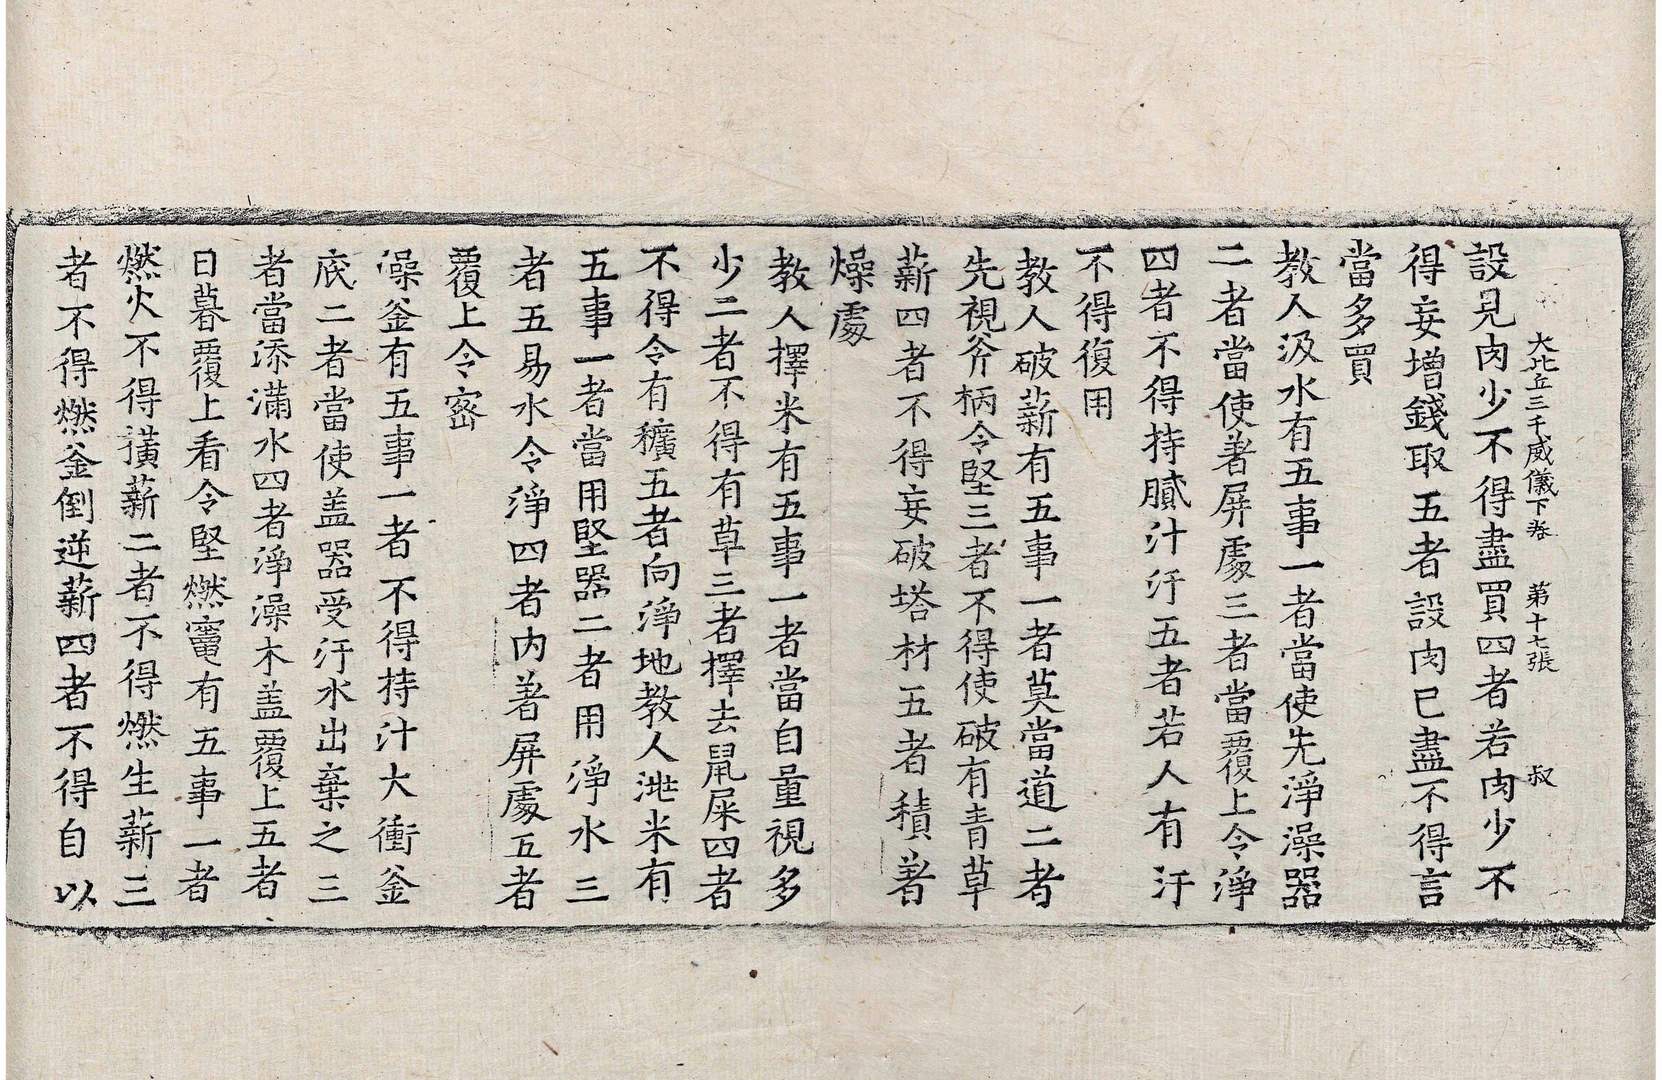 大比丘三千威儀下卷 第十七張 叔
設見肉少不得盡買四者若肉少不
得妄增錢取五者設肉已盡不得言
當多買
教人汲水有五事一者當使先淨澡器
二者當使著屏處三者當覆上令淨
四者不得持膩汁汙五者若人有汙
不得復用
教人破薪有五事一者莫當道二者
先視斧柄令堅三者不得使破有青草
薪四者不得妄破塔材五者積著
燥處
教人擇米有五事一者當自量視多
少二者不得有草三者擇去鼠屎四者
不得令有穬五者向淨地教人洮米有
五事一者當用堅器二者用淨水三
者五易水令淨四者內著屏處五者
覆上令密
澡釜有五事一者不得持汁大衝釜
底二者當使盖器受汙水出棄之三
者當添滿水四者淨澡木盖覆上五者
日暮覆上看令堅燃竈有五事一者
燃火不得橫薪二者不得燃生薪三
者不得燃釜倒逆薪四者不得自以